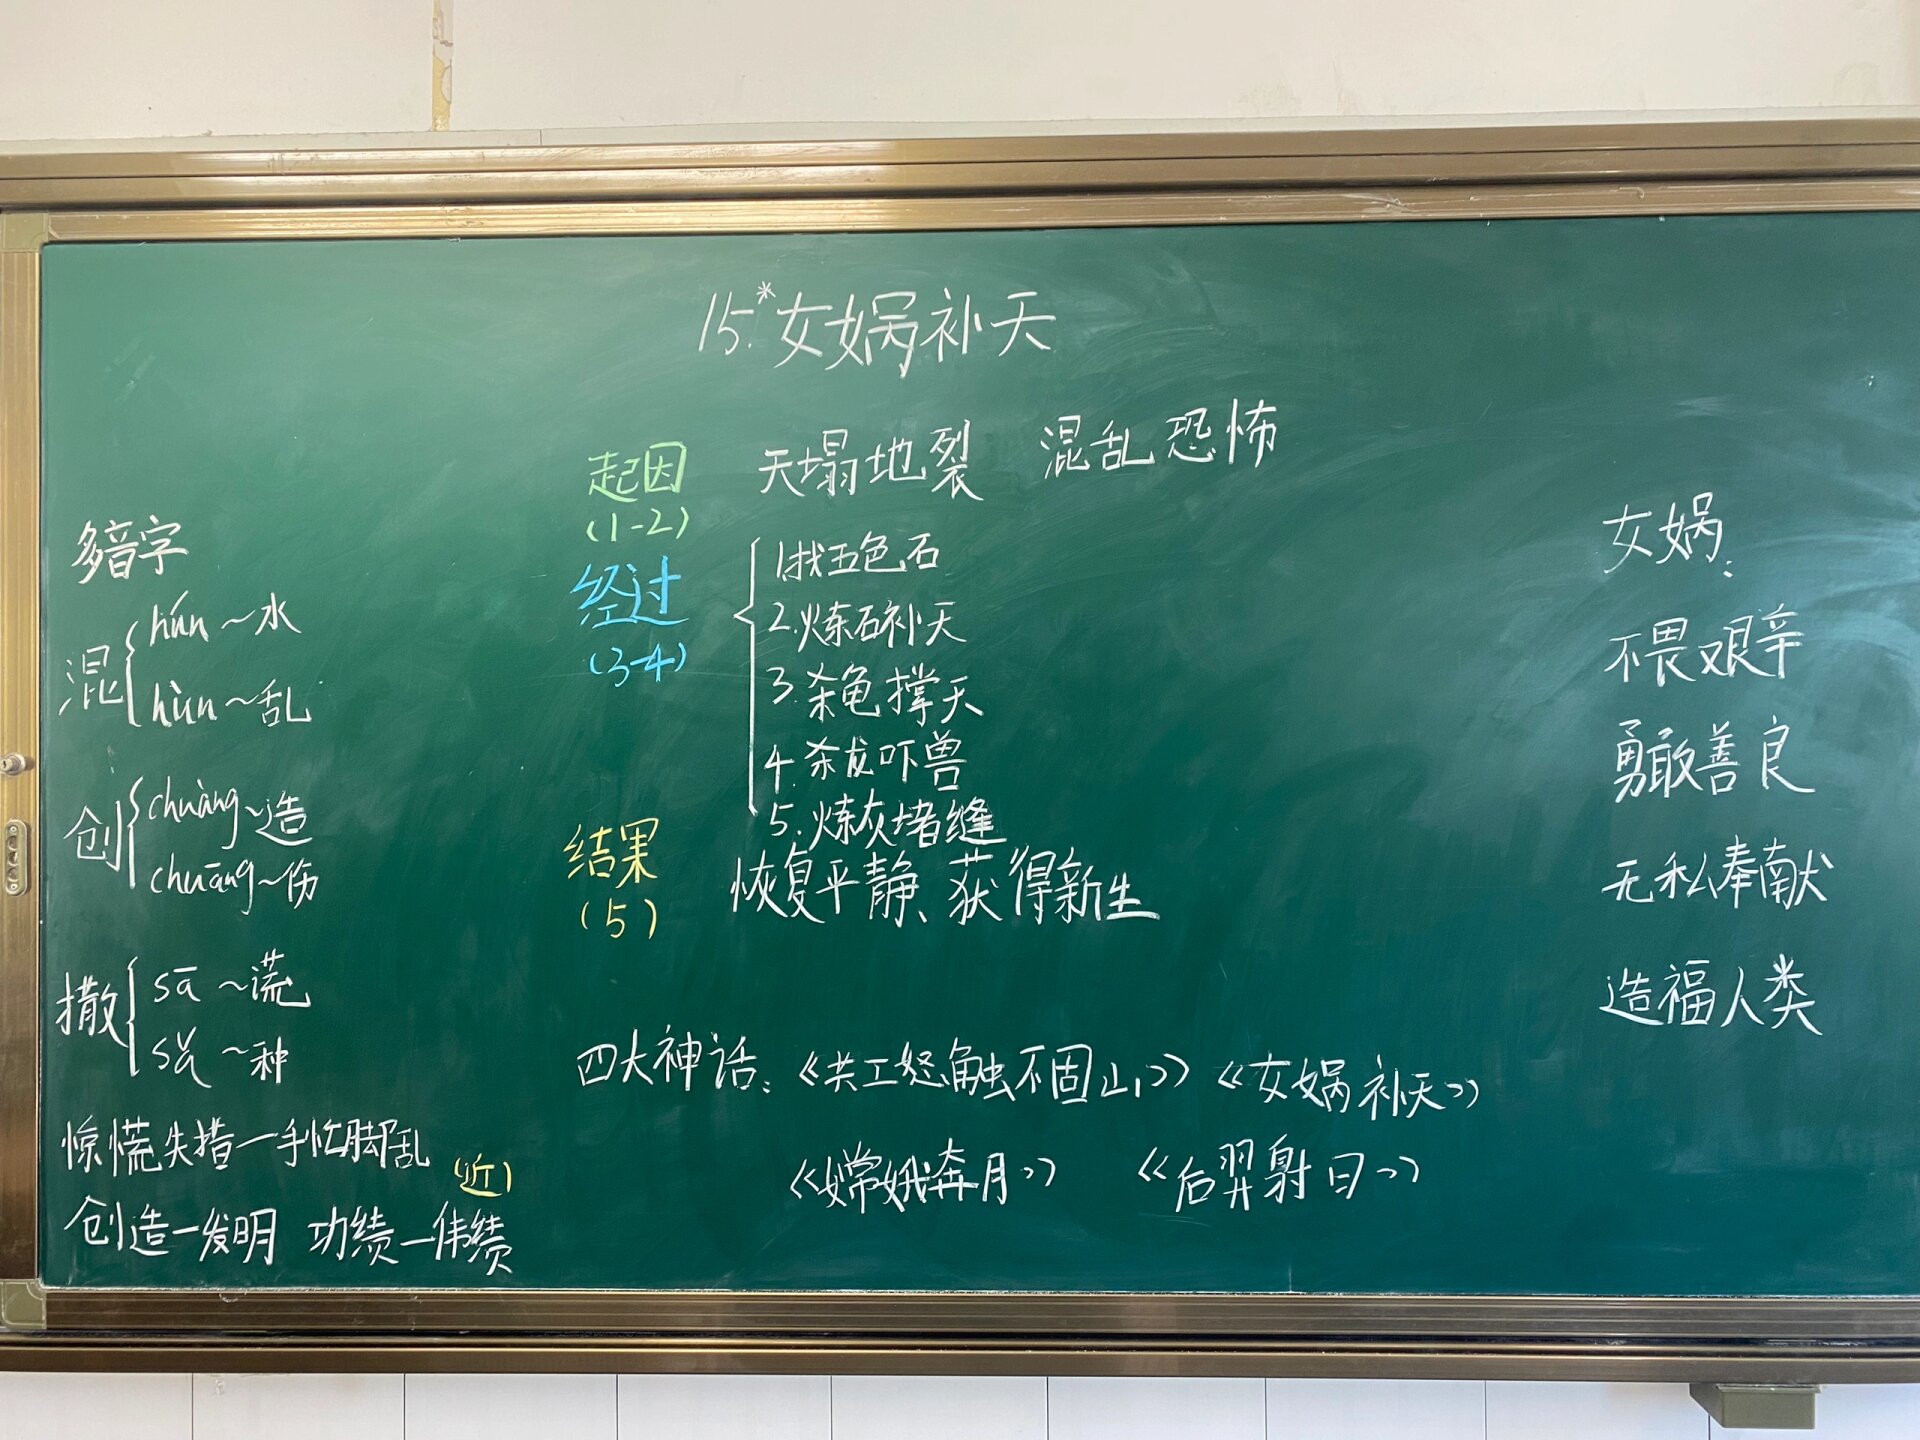 15.*女娲补天
多音字
混 hún ~水
hùn ~乱
创 chuàng ~造
chuāng ~伤
撒 sā ~谎
sǎ ~种
惊慌失措—手忙脚乱
(近)
创造—发明 功绩—伟绩
起因 天塌地裂 混乱恐怖
(1-2)
经过
(3-4)
1.找五色石
2.炼石补天
3.杀龟撑天
4.杀龙吓兽
5.炼灰堵缝
结果 恢复平静、获得新生
(5)
四大神话:《共工怒触不固山》《女娲补天》
《嫦娥奔月》 《后羿射日》
女娲:
不畏艰辛
勇敢善良
无私奉献
造福人类